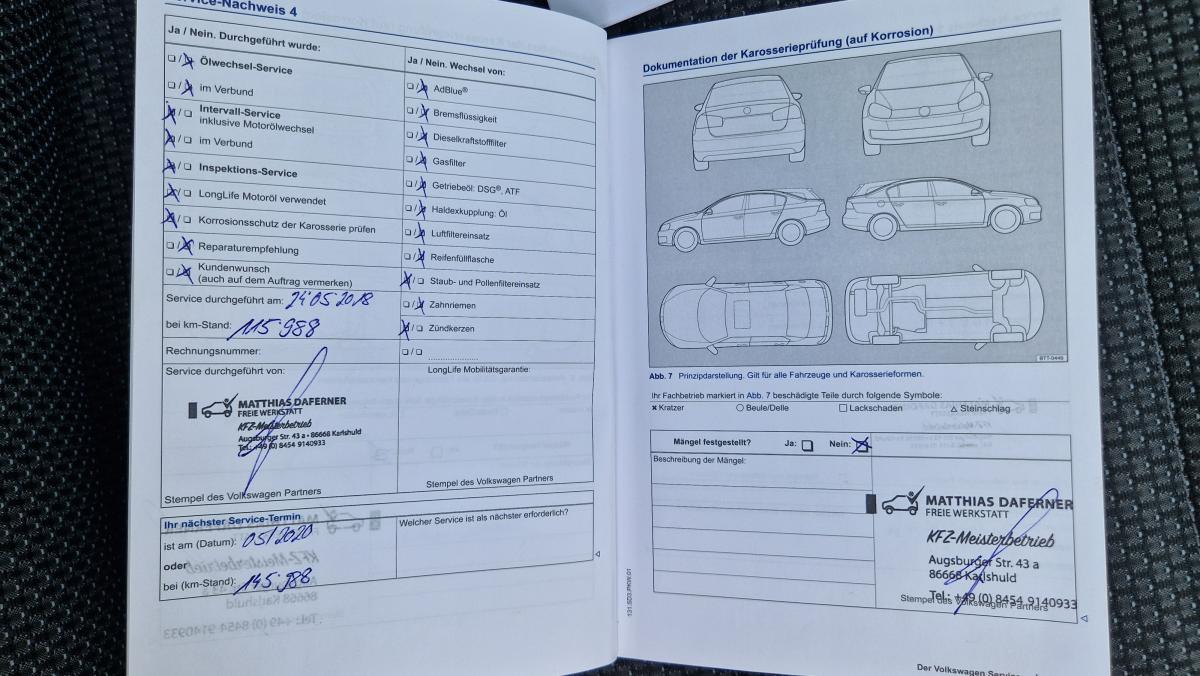 Service-Nachweis 4
Ja / Nein. Durchgeführt wurde:
❏/❏ Ölwechsel-Service
❏/❏ im Verbund
❏/❏ Intervall-Service
inklusive Motorölwechsel
❏/❏ im Verbund
❏/❏ Inspektions-Service
❏/❏ LongLife Motoröl verwendet
❏/❏ Korrosionsschutz der Karosserie prüfen
❏/❏ Reparaturempfehlung
❏/❏ Kundenwunsch
(auch auf dem Auftrag vermerken)
Service durchgeführt am: 24.05.2018
bei km-Stand: 115.988
Rechnungsnummer:
Service durchgeführt von:
MATTHIAS DAFERNER
FREIE WERKSTATT
KFZ-Meisterbetrieb
Augsburger Str. 43 a - 86668 Karlshuld
Tel.: +49 (0) 8454 9140933
Stempel des Volkswagen Partners
Ja / Nein. Wechsel von:
❏/❏ AdBlue®
❏/❏ Bremsflüssigkeit
❏/❏ Dieselkraftstofffilter
❏/❏ Gasfilter
❏/❏ Getriebeöl: DSG®, ATF
❏/❏ Haldexkupplung: Öl
❏/❏ Luftfiltereinsatz
❏/❏ Reifenfüllflasche
❏/❏ Staub- und Pollenfiltereinsatz
❏/❏ Zahnriemen
❏/❏ Zündkerzen
❏/❏ ....................
LongLife Mobilitätsgarantie:
Stempel des Volkswagen Partners
Ihr nächster Service-Termin
ist am (Datum): 05/2020
oder
bei (km-Stand): 145.988
Welcher Service ist als nächster erforderlich?
Dokumentation der Karosserieprüfung (auf Korrosion)
BTT-0449
Abb. 7 Prinzipdarstellung. Gilt für alle Fahrzeuge und Karosserieformen.
Ihr Fachbetrieb markiert in Abb. 7 beschädigte Teile durch folgende Symbole:
✖ Kratzer ○ Beule/Delle □ Lackschaden △ Steinschlag
Mängel festgestellt? Ja: ❏ Nein: ❏
Beschreibung der Mängel:
MATTHIAS DAFERNER
FREIE WERKSTATT
KFZ-Meisterbetrieb
Augsburger Str. 43 a
86668 Karlshuld
Tel.: +49 (0) 8454 9140933
Stempel des Volkswagen Partners
131.5D3.PKW.01
Der Volkswagen